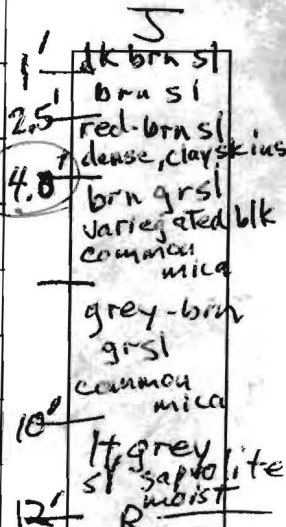 5
dk brn sl
1'
brn sl
2.5'
red-brn sl
dense, clay skins
4.0'
brn grsl
variegated blk
common
mica
grey-brn
grsl
common
mica
10'
lt. grey
sl saprolite
moist
12'
R